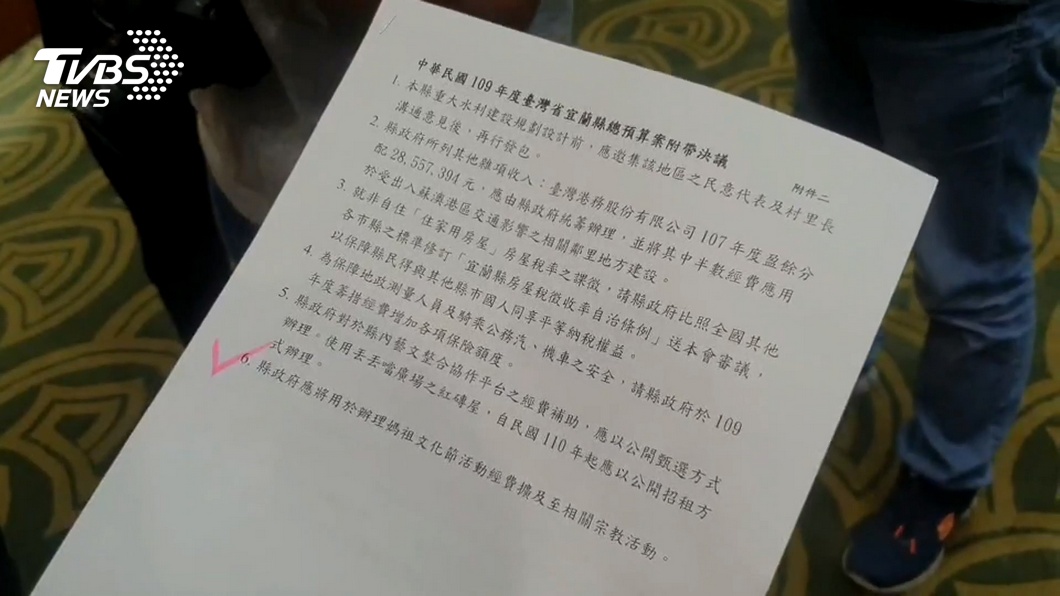 TVBS
NEWS
附件二
中華民國109年度臺灣省宜蘭縣總預算案附帶決議
1. 本縣重大水利建設規劃設計前，應邀集該地區之民意代表及村里長
溝通意見後，再行發包。
2. 縣政府所列其他雜項收入：臺灣港務股份有限公司107年度盈餘分
配28,557,394元，應由縣政府統籌辦理，並將其中半數經費應用
於受出入蘇澳港區交通影響之相關鄰里地方建設。
3. 就非自住「住家用房屋」房屋稅率之課徵，請縣政府比照全國其他
各市縣之標準修訂「宜蘭縣房屋稅徵收率自治條例」送本會審議，
以保障縣民得與其他縣市國人同享平等納稅權益。
4. 為保障地政測量人員及騎乘公務汽、機車之安全，請縣政府於109
年度籌措經費增加各項保險額度。
5. 縣政府對於縣內藝文整合協作平台之經費補助，應以公開甄選方式
辦理。使用丟丟噹廣場之紅磚屋，自民國110年起應以公開招租方
式辦理。
6. 縣政府應將用於辦理媽祖文化節活動經費擴及至相關宗教活動。